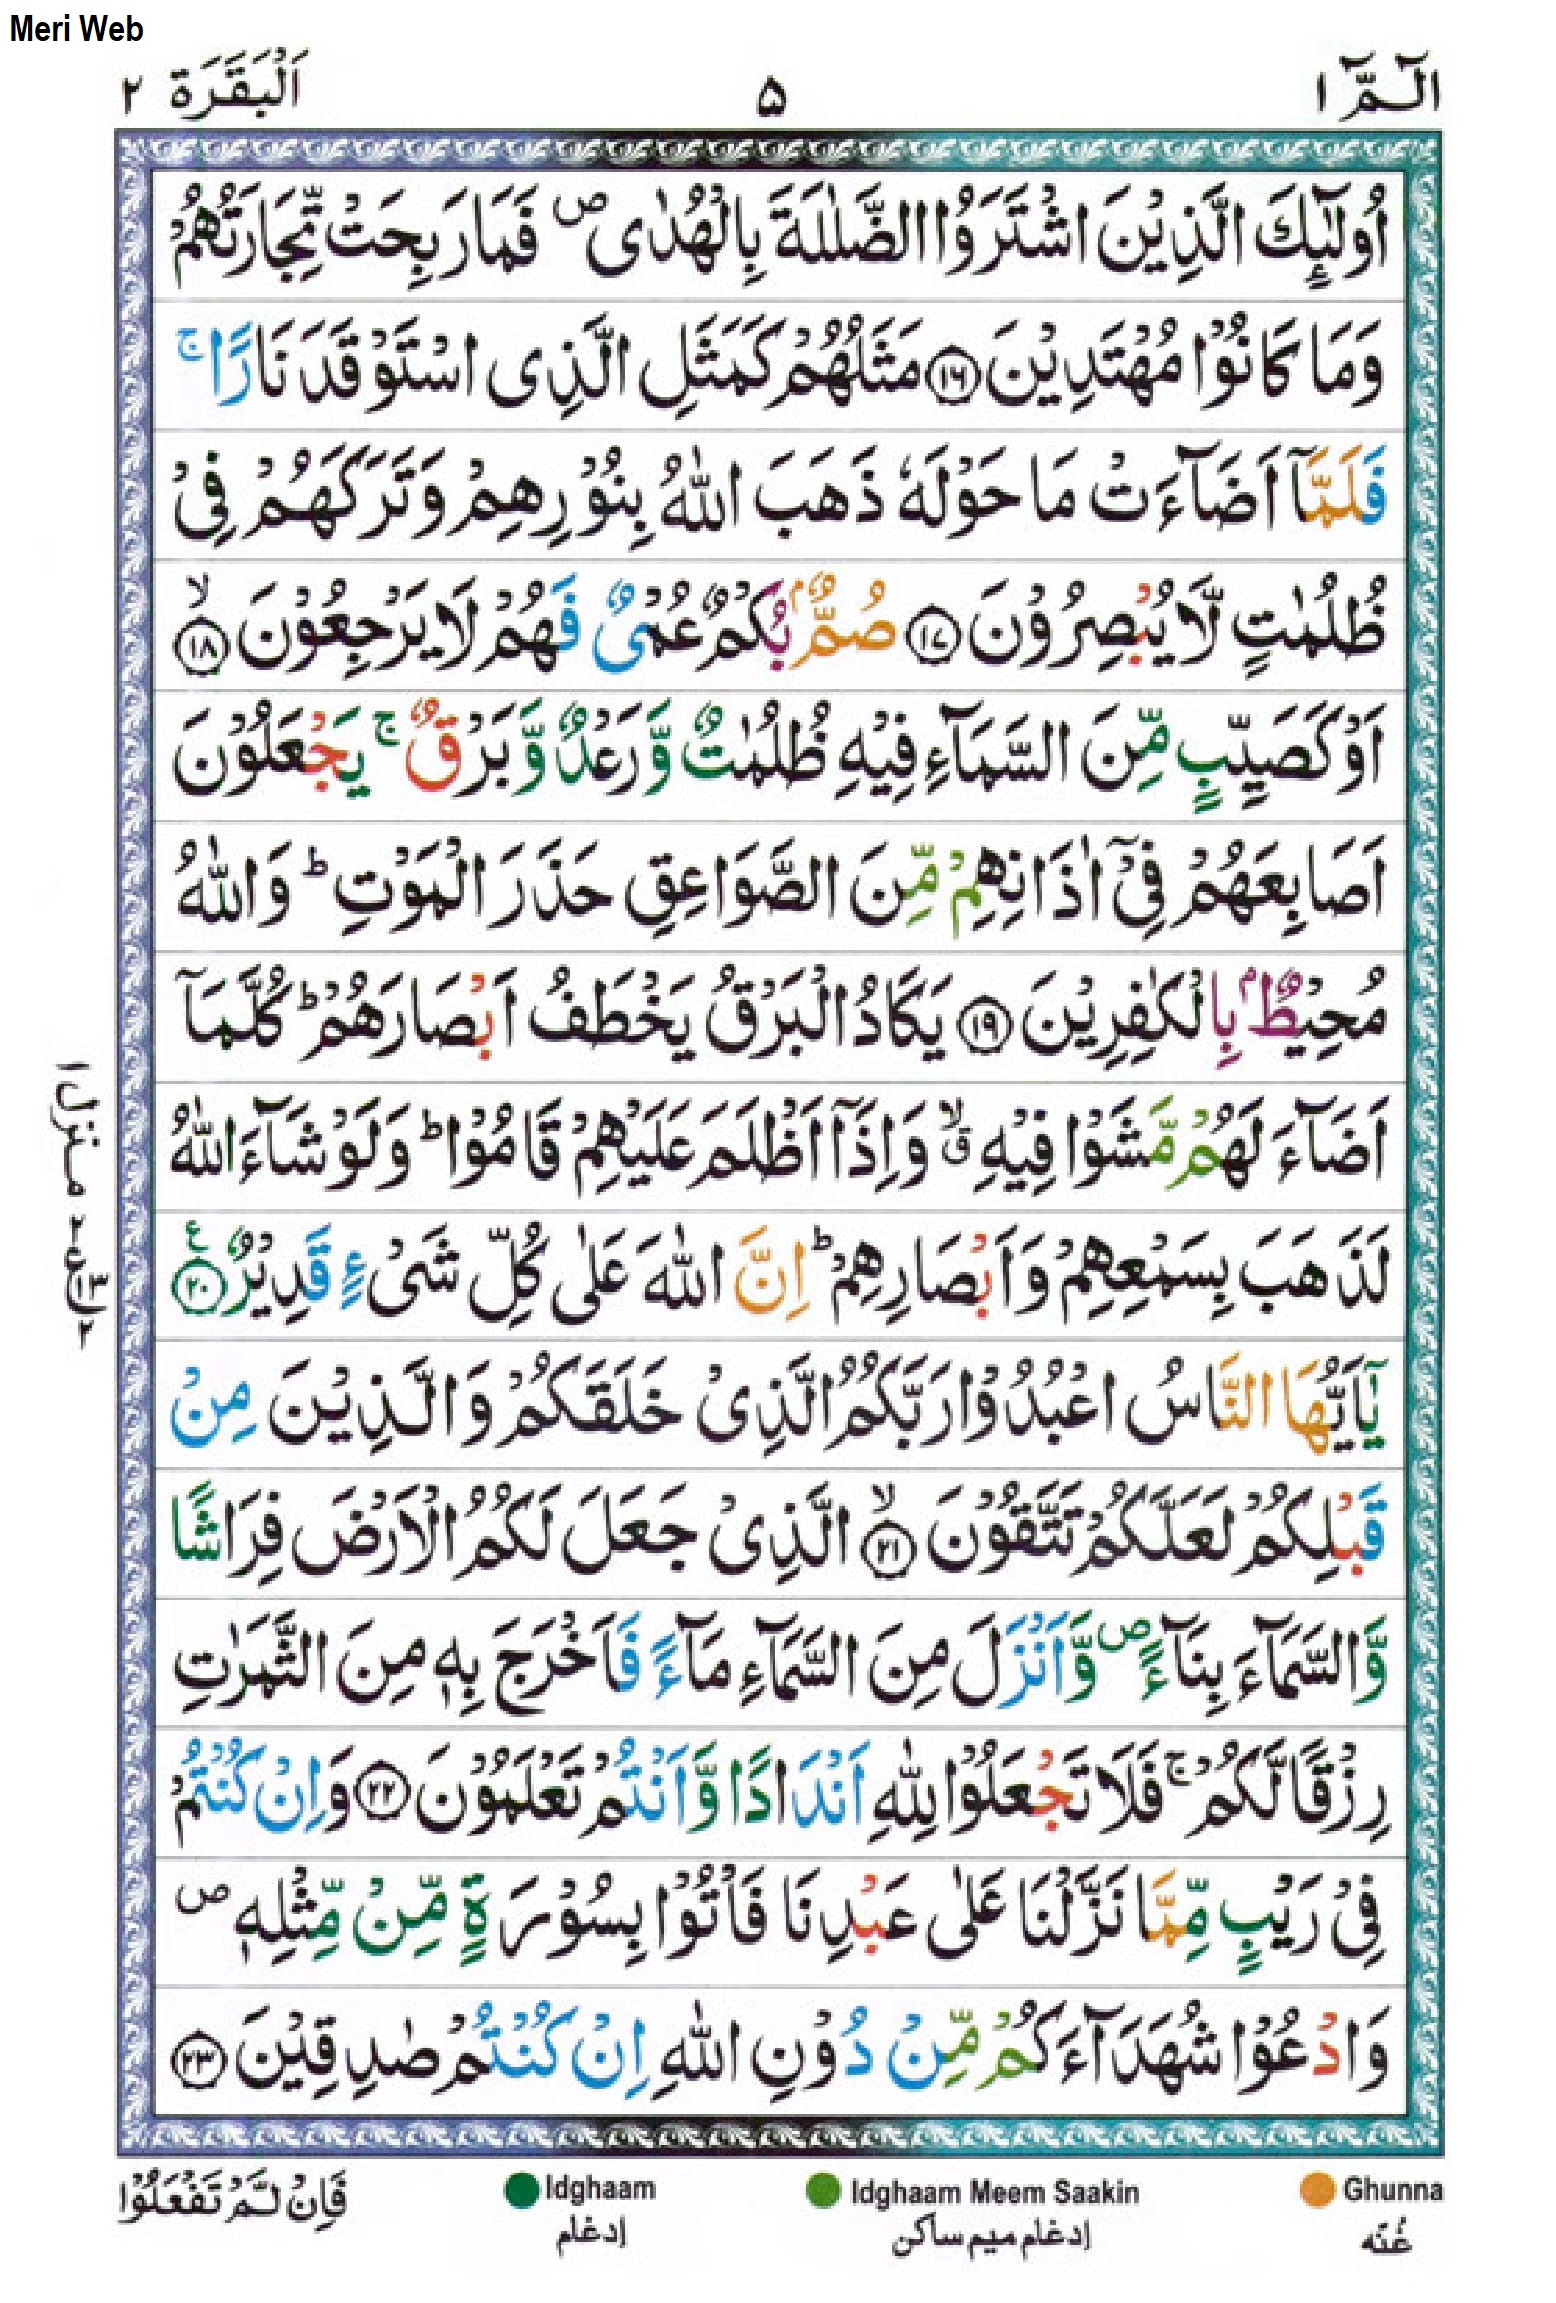 Meri Web
الٓـمّٓ ١ ٥ اَلْبَقَرَة ٢
اُولٰٓئِكَ الَّذِيْنَ اشْتَرَوُا الضَّلٰلَةَ بِالْهُدٰى ۪ فَمَا رَبِحَتْ تِّجَارَتُهُمْ
وَمَا كَانُوْا مُهْتَدِيْنَ ﴿۱۶﴾ مَثَلُهُمْ كَمَثَلِ الَّذِى اسْتَوْقَدَ نَارًا ۚ
فَلَمَّآ اَضَآءَتْ مَا حَوْلَهٗ ذَهَبَ اللّٰهُ بِنُوْرِهِمْ وَتَرَكَهُمْ فِىْ
ظُلُمٰتٍ لَّا يُبْصِرُوْنَ ﴿۱۷﴾ صُمٌّۢ بُكْمٌ عُمْىٌ فَهُمْ لَا يَرْجِعُوْنَ ۙ﴿۱۸﴾
اَوْ كَصَيِّبٍ مِّنَ السَّمَآءِ فِيْهِ ظُلُمٰتٌ وَّرَعْدٌ وَّبَرْقٌ ۚ يَجْعَلُوْنَ
اَصَابِعَهُمْ فِىْٓ اٰذَانِهِمْ مِّنَ الصَّوَاعِقِ حَذَرَ الْمَوْتِ ؕ وَاللّٰهُ
مُحِيْطٌۢ بِالْكٰفِرِيْنَ ﴿۱۹﴾ يَكَادُ الْبَرْقُ يَخْطَفُ اَبْصَارَهُمْ ؕ كُلَّمَآ
اَضَآءَ لَهُمْ مَّشَوْا فِيْهِ ۙۗ وَاِذَآ اَظْلَمَ عَلَيْهِمْ قَامُوْا ؕ وَلَوْ شَآءَ اللّٰهُ
لَذَهَبَ بِسَمْعِهِمْ وَاَبْصَارِهِمْ ؕ اِنَّ اللّٰهَ عَلٰى كُلِّ شَىْءٍ قَدِيْرٌ ﴿۲۰﴾ ع
يٰٓاَيُّهَا النَّاسُ اعْبُدُوْا رَبَّكُمُ الَّذِىْ خَلَقَكُمْ وَالَّذِيْنَ مِنْ
قَبْلِكُمْ لَعَلَّكُمْ تَتَّقُوْنَ ۙ﴿۲۱﴾ الَّذِىْ جَعَلَ لَكُمُ الْاَرْضَ فِرَاشًا
وَّالسَّمَآءَ بِنَآءً ۪ وَّاَنْزَلَ مِنَ السَّمَآءِ مَآءً فَاَخْرَجَ بِهٖ مِنَ الثَّمَرٰتِ
رِزْقًا لَّكُمْ ۚ فَلَا تَجْعَلُوْا لِلّٰهِ اَنْدَادًا وَّاَنْتُمْ تَعْلَمُوْنَ ﴿۲۲﴾ وَاِنْ كُنْتُمْ
فِىْ رَيْبٍ مِّمَّا نَزَّلْنَا عَلٰى عَبْدِنَا فَاْتُوْا بِسُوْرَةٍ مِّنْ مِّثْلِهٖ ۪
وَادْعُوْا شُهَدَآءَكُمْ مِّنْ دُوْنِ اللّٰهِ اِنْ كُنْتُمْ صٰدِقِيْنَ ﴿۲۳﴾
منزل ١
فَاِنْ لَّمْ تَفْعَلُوْا
Idghaam Idghaam Meem Saakin Ghunna
إدغام إدغام ميم ساكن غُنّه